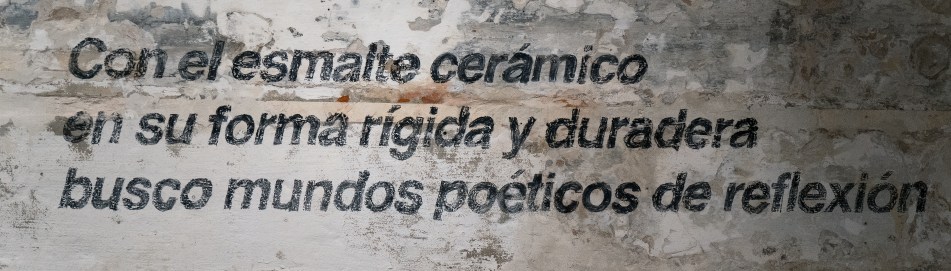 Con el esmalte cerámico
en su forma rígida y duradera
busco mundos poéticos de reflexión